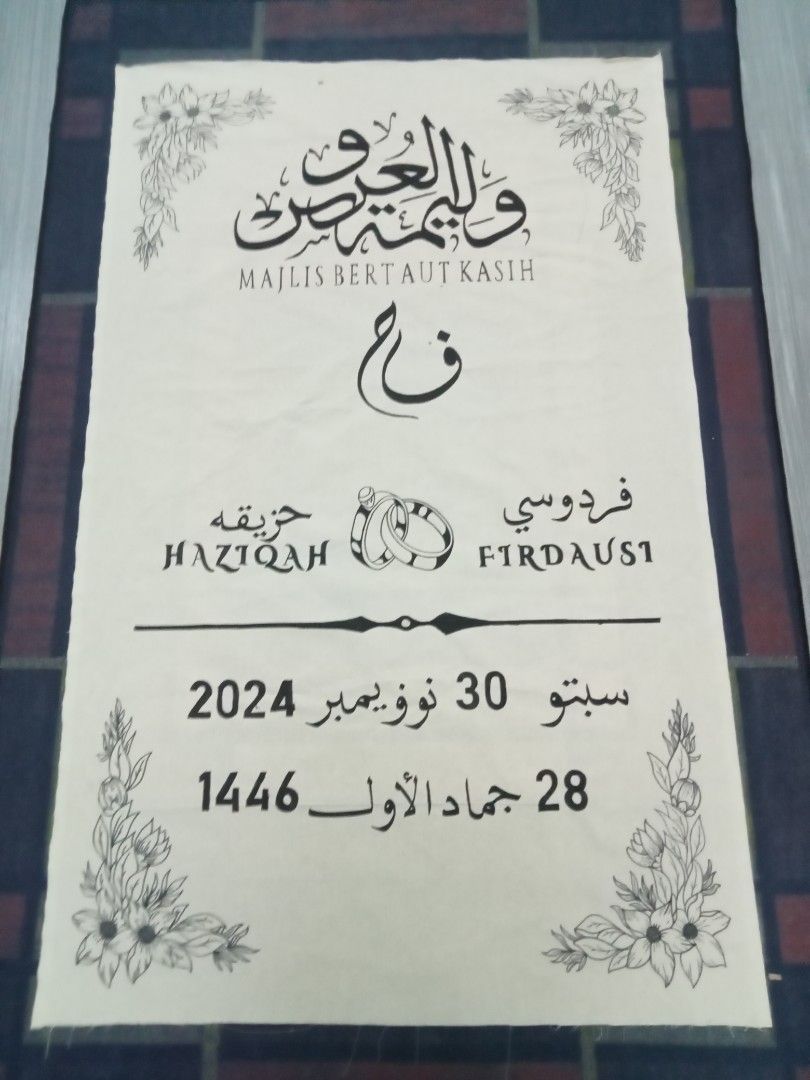 وليمة العروس
MAJLIS BERTAUT KASIH
ف ح
فردوسي
حزيقه
HAZIQAH
FIRDAUSI
سبتو 30 نوۏيمبر 2024
28 جماد الأول 1446